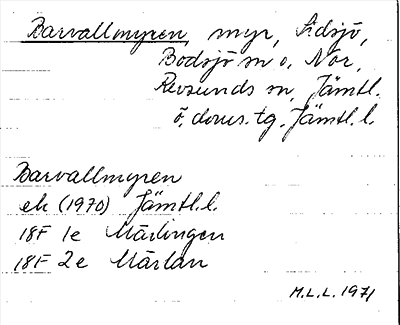 Barvallmyren, myr, Sidsjö,
Bodsjö sn o. Nor,
Revsunds sn, Jämtl.
ö. doms. tg. Jämtl. l.
Barvallmyren
ek (1970) Jämtl. l.
18F 1e Mårdingen
18F 2e Mårlan
M.L.L. 1971